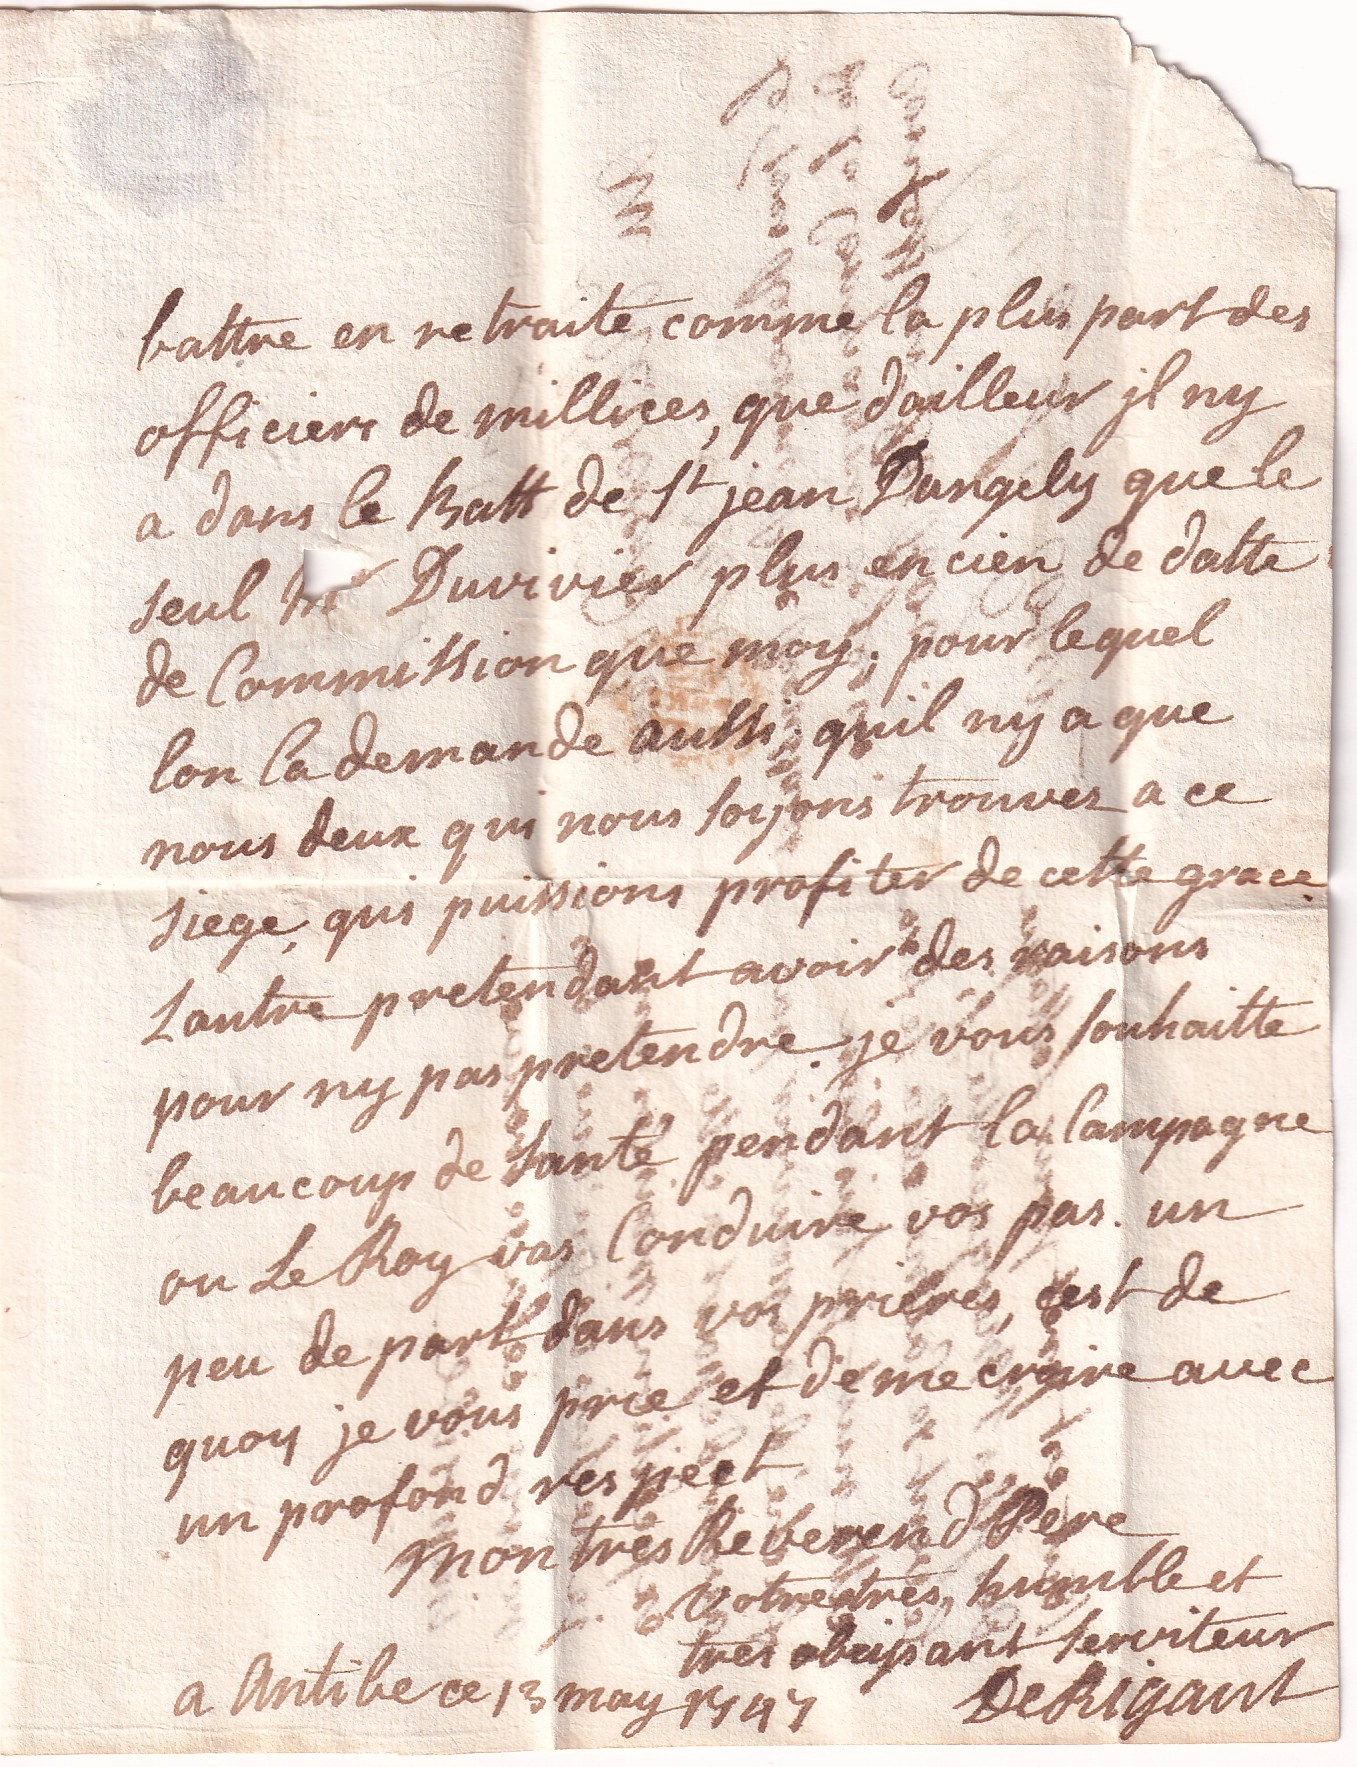 battre en retraite comme la plus part des
officiers de millices, que dailleur jl ny
a dans le Batt de St jean Dangely que le
seul Mr Duvivier plus encien de datte
de Commission que moy, pour lequel
lon la demande aussi, quil ny a que
nous deux qui nous soyons trouvez a ce
siege, qui puissions profiter de cette grace
Lautre pretendant avoir des raisons
pour ny pas pretendre. je vous souhaitte
beaucoup de santé pendant la Campagne
ou Le Roy vas Conduire vos pas. un
peu de part dans vos prieres, cest de
quoy je vous prie et de me croire avec
un profond respect
Mon tres Reverend Pere
Votre tres humble et
tres obeissant serviteur
a Antibe ce 13 may 1747 De Rigaut